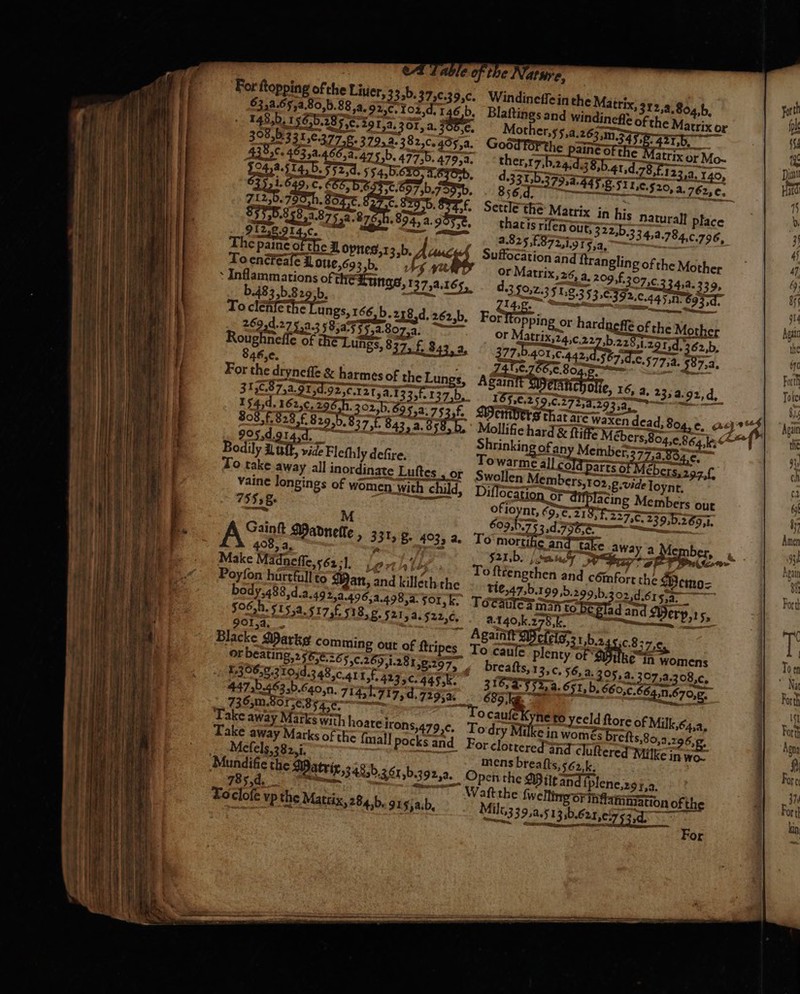 A Table of the Nature,
For stopping of the Liuer, 33,b. 37,c.39,c.
63,a.65,a.80,b.88,a.92,c.102,d.146,b.
148,b.156,b.285,c.291,a.301,a.306,c.
308,b.331,c.377,g.379,a.382,c.405,a.
438,c.463,a.466,a.475,b.477,b.479,a.
712,b.790,h.804,c.827,c.829,b.
912,g.914,c.
The paine of the Loynes,13,b.
To encrease Loue,693,b.
Inflammations of the Lungs,137,a.165,
b.483,b.829,b.
To clense the Lungs,166,b.218,d.262,b.
269,d.275,a.358,a.555,a.807,a.
Roughnesse of the Lungs, 837,f. 843,a,
846,e.
For the drynesse & harmes of the Lungs,
31,c.87,a.91,d.92,c.121,a.133,f.137,b.
154,d.162,c.296,h.302,b.695,a.753,f.
808,f.828,f.829,b.837,f.843,a.858,b.
905,d.914,d.
Bodily Lust, vide Fleshly desire.
To take away all inordinate Lustes, or
vaine longings of women with child,
755,g.
M
AGainst Madnesse, 331, g. 403, a.
408, a,
Make Madnesse,562,l.
Poyson hurtfull to Man, and killeth the
body,488,d.a.492,a.496,a.498,a.501,k.
506,h.515,a.517,f.518,g.521,a.522,c.
901,a.
Blacke Markes comming out of stripes
or beating,256,c.265,c.269,i.281,g.297,
k.306,g.310,d.348,c.411,f.423,c.445,k.
447,b.463,b.640,n.714,l.717,d.729,a.
736,m.801,c.854,c.
Take away Marks with hoate irons,479,c.
Take away Marks of the small pocks and
Mesels,382,i.
Mundifie the Matrix,348,b.361,b.392,a.
785,d.
To close vp the Matrix, 284,b. 915,a.b.
Windinesse in the Matrix, 312,a.804,b.
Blastings and windinesse of the Matrix or
Mother,55,a.263,m.345,g.421,b.
Good for the paine of the Matrix or Mo-
ther,17,b.24,d.38,b.41,d.78,f.123,a.140,
d.331,b.379,a.445,g.511,c.520,a.762,c.
856,d.
Settle the Matrix in his naturall place
that is risen out, 322,b.334,a.784,c.796,
a.825,f.872,l.915,a,
Suffocation and strangling of the Mother
or Matrix, 26, a. 209,f.307,c.334,a.339,
d.350,z.351,g.353,c.392,c.445,n.693,d.
714,g.
For stopping or hardnesse of the Mother
or Matrix,24,c.227,b.228,l.291,d.362,b,
377,b.401,c.442,d.567,d.c.577,a.587,a,
741,c.766,c.804,g.
Against Melancholie, 16, a, 23,a.92,d,
165,c.259,c.272,a.293,a,
Members that are waxen dead, 804, e.
Mollifie hard & stiffe Mēbers,804,e.864,k.
Shrinking of any Member,377,a.804,e.
To warme all cold parts of Mēbers,297,f.
Swollen Members,102,g.vide Ioynt.
Dislocation or displacing Members out
of ioynt, 69,e.218,f.227,c.239,b.269,i.
609,b.753,d.796,c.
To mortifie and take away a Member,
521,b.
To strengthen and comfort the Memo-
rie,47,b.199,b.299,b.302,d.615,a.
To cause a man to be glad and Mery,15,
a.140,k.278,k.
Against Mesels,31,b.245,c.857,e,
To cause plenty of Milke in womens
breasts, 13, c. 56, a. 305, a. 307,a.308,c.
316,a.552,a.651,b.660,c.664,n.670,g.
689,k.
To cause Kyne to yeeld store of Milk,64,a,
To dry Milke in womēs brests,80,a.296,g.
For clottered and clustered Milke in wo-
mens breasts,562,k.
Open the Milt and splene,291,a.
Wast the swelling or inflammation of the
Milt,339,a.513,b.621,c.753,d.
For